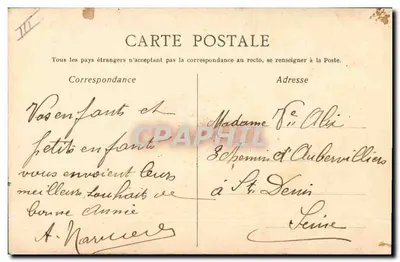 III
CARTE POSTALE
Tous les pays étrangers n'acceptant pas la correspondance au recto, se renseigner à la Poste.
Correspondance
Adresse
Vos enfants et
petits enfants
vous envoient leurs
meilleurs souhaits de
bonne année
Madame Vve Alix
8 chemin d'Aubervilliers
à St Denis
Seine
CPAPHIL.COM